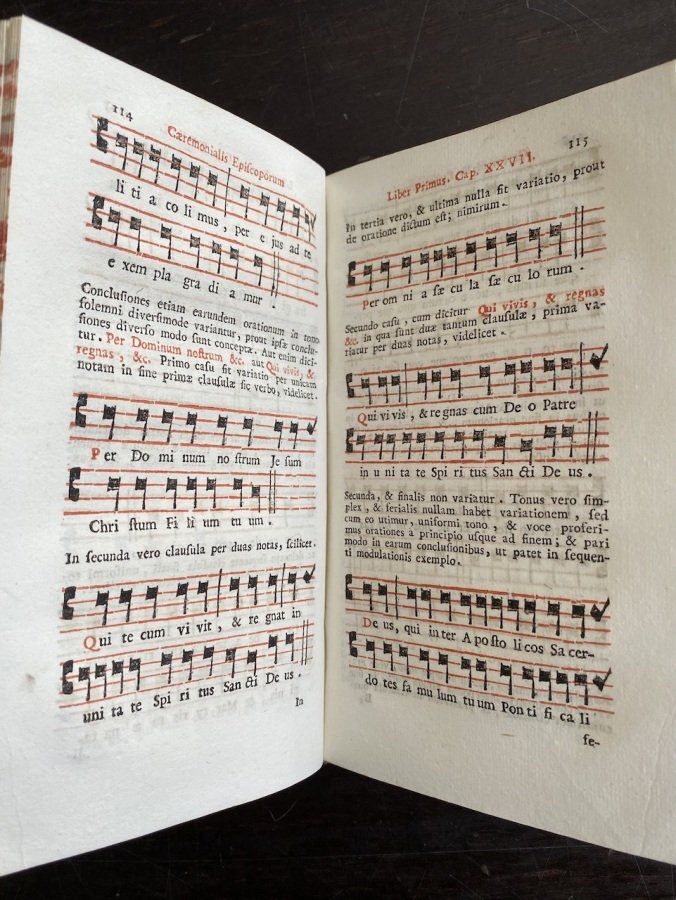 114
Cæremonialis Epiſcoporum
li ti a co li mus, per e jus ad te
e xem pla gra di a mur.
Concluſiones etiam earundem orationum in tono
ſolemni diverſimode variantur, prout ipſæ conclu-
ſiones diverſo modo ſunt conceptæ. Aut enim dici-
tur. Per Dominum noſtrum &c. aut Qui vivis, &
regnas, &c. Primo caſu fit variatio per unicam
notam in fine primæ clauſulæ ſic verbo, videlicet.
Per Do mi num no ſtrum Je ſum
Chri ſtum Fi li um tu um.
In ſecunda vero clauſula per duas notas, ſcilicet.
Qui te cum vi vit, & re gnat in
uni ta te Spi ri tus San cti De us.
In
115
Liber Primus. Cap. XXVII.
In tertia vero, & ultima nulla fit variatio, prout
de oratione dictum eſt; nimirum.
Per om ni a ſæ cu la ſæ cu lo rum.
Secundo caſu, cum dicitur Qui vivis, & regnas
&c. in qua ſunt duæ tantum clauſulæ, prima va-
riatur per duas notas, videlicet.
Qui vi vis, & re gnas cum De o Patre
in u ni ta te Spi ri tus San cti De us.
Secunda, & finalis non variatur. Tonus vero ſim-
plex, & ferialis nullam habet variationem, ſed
cum eo utimur, uniformi tono, & voce proferi-
mus orationes a principio uſque ad finem; & pari
modo in earum concluſionibus, ut patet in ſequen-
ti modulationis exemplo.
De us, qui in ter A po ſto li cos Sa cer-
do tes fa mu lum tu um Pon ti fi ca li
fe-